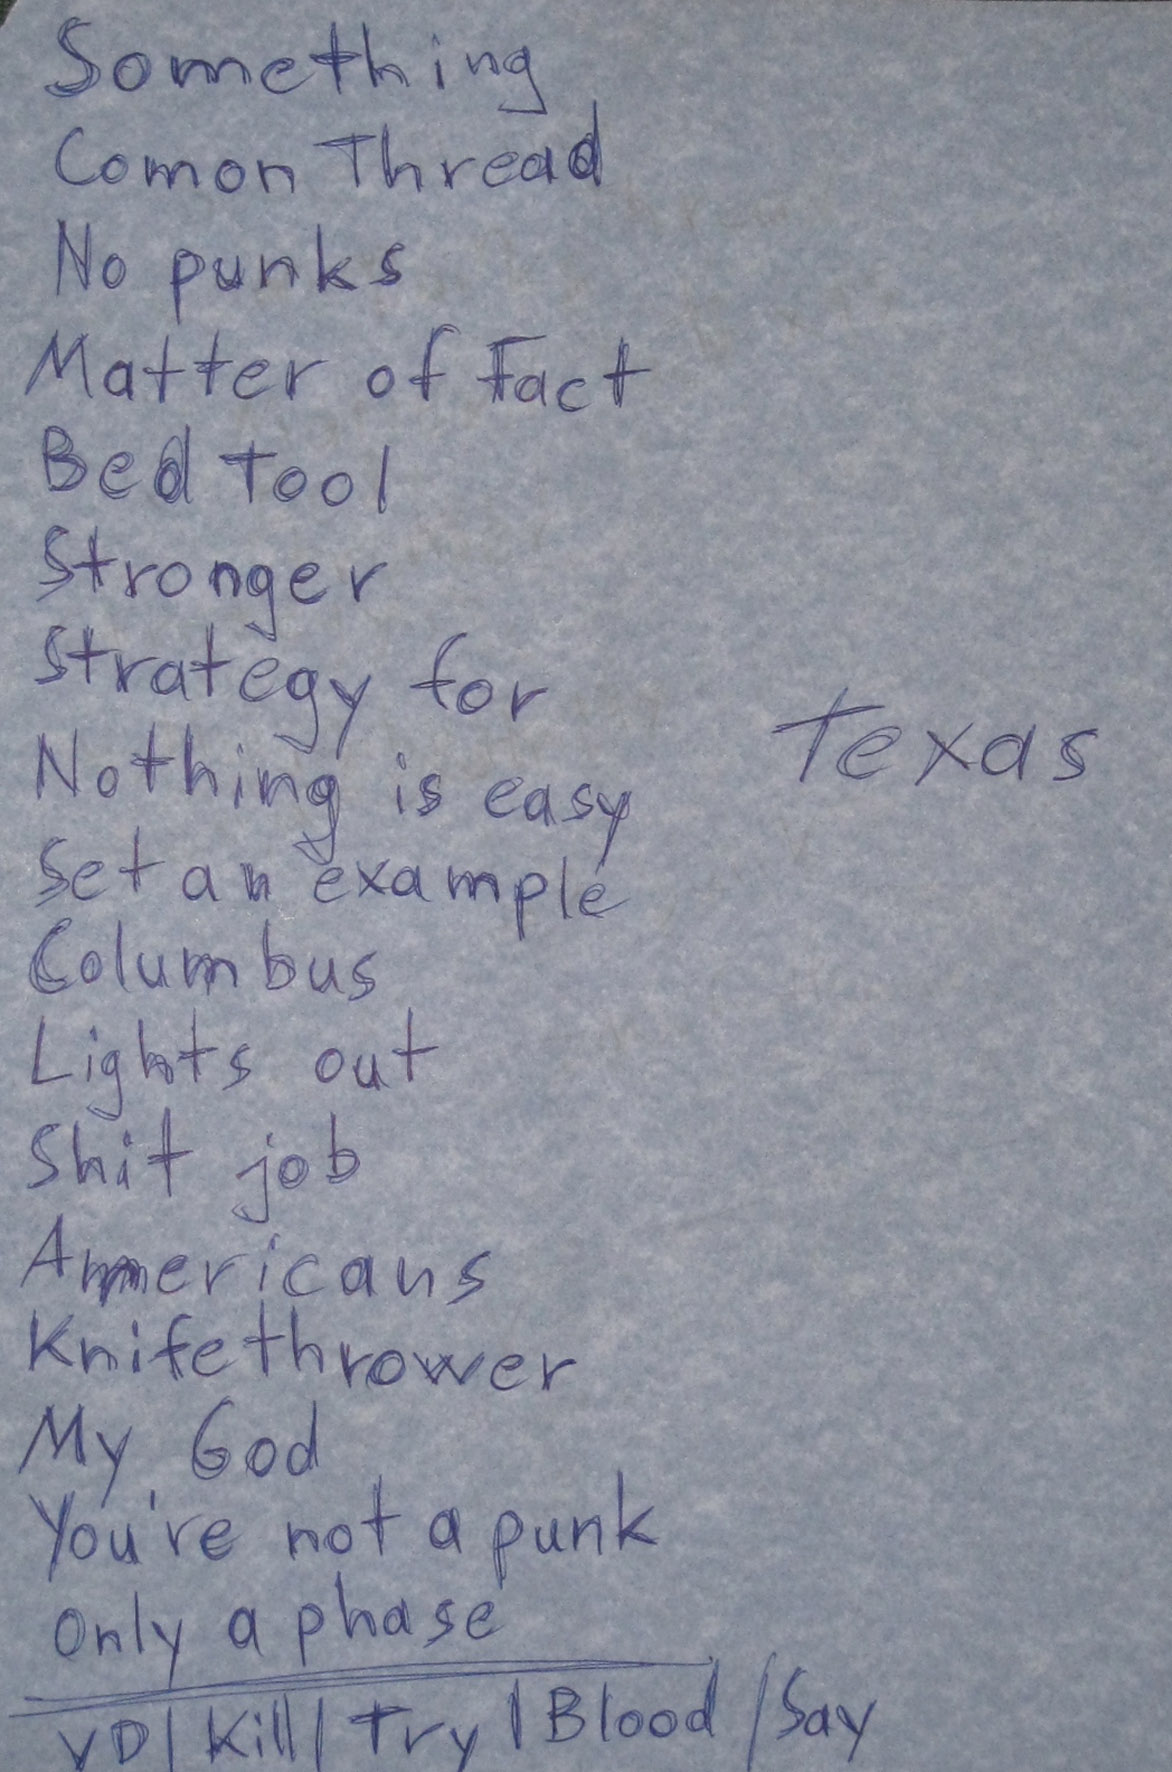 Something
Comon Thread
No punks
Matter of Fact
Bed Tool
Stronger
Strategy for
Nothing is easy
Texas
Set an example
Columbus
Lights out
Shit job
Americans
Knifethrower
My God
You're not a punk
Only a phase
VD | Kill | Try | Blood / Say